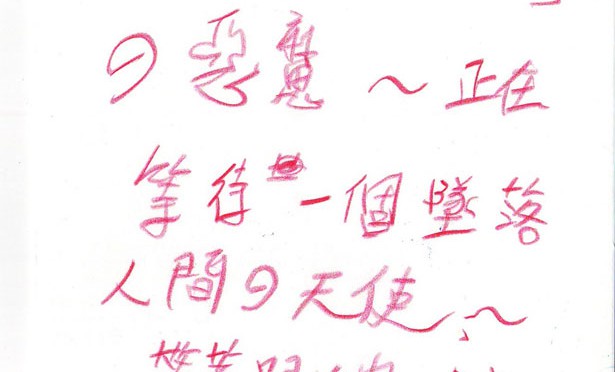 の惡魔~正在
等待一個墜落
人間の天使~